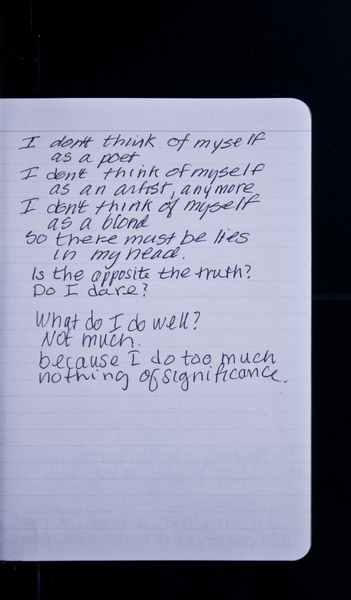 I don't think of myself
as a poet
I don't think of myself
as an artist, anymore
I don't think of myself
as a blond
So there must be lies
in my head.
Is the opposite the truth?
Do I dare?
What do I do well?
Not much.
because I do too much
nothing of significance.